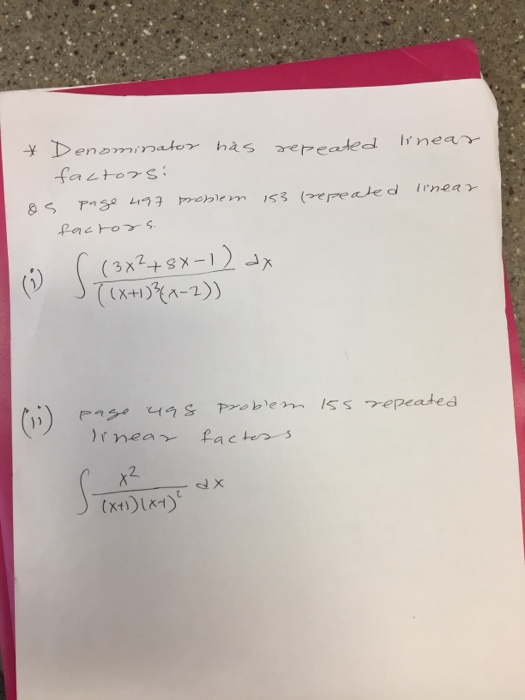 * Denominator has repeated linear
factors:
QS page 497 problem 153 (repeated linear
factors.
(i) ∫ (3x²+8x-1) / ((x+1)³(x-2)) dx
(ii) page 498 problem 155 repeated
linear factors
∫ x² / (x+1)(x-1)² dx